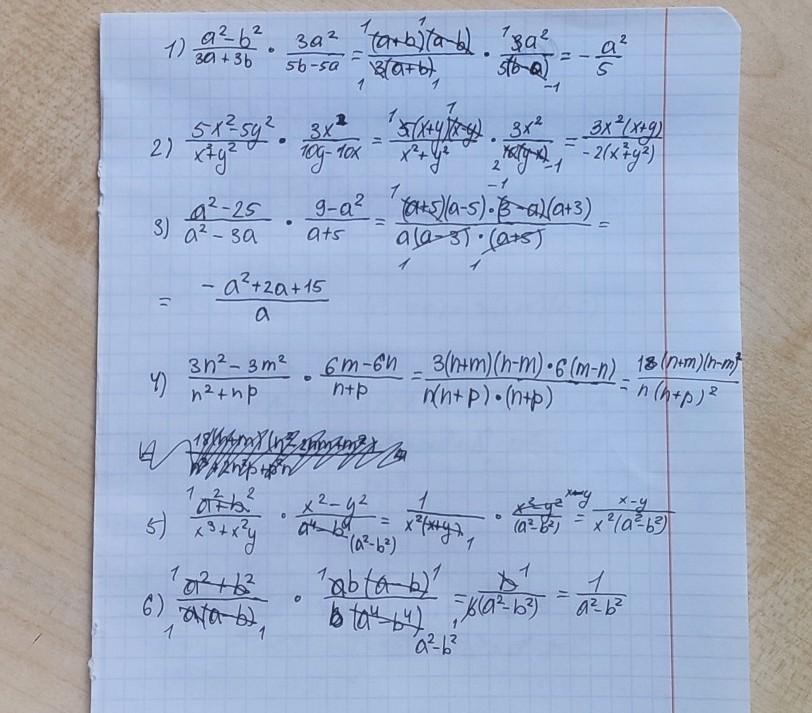 1) (a²-b²)/(3a+3b) · 3a²/(5b-5a) = (a+b)(a-b)/(3(a+b)) · 3a²/(5(b-a)) = -a²/5
2) (5x²-5y²)/(x²+y²) · 3x²/(10y-10x) = 5(x+y)(x-y)/(x²+y²) · 3x²/(10(y-x)) = 3x²(x+y)/(-2(x²+y²))
3) (a²-25)/(a²-3a) · (9-a²)/(a+5) = (a+5)(a-5)·(3-a)(a+3)/(a(a-3)·(a+5)) =
= (-a²+2a+15)/a
4) (3n²-3m²)/(n²+np) · (6m-6n)/(n+p) = 3(n+m)(n-m)·6(m-n)/(n(n+p)·(n+p)) = 18(n+m)(n-m)²/(n(n+p)²)
5) (a²+b²)/(x³+x²y) · (x²-y²)/(a⁴-b⁴) (a²-b²) = 1/(x²(x+y)) · (x²-y²)/(a²-b²) x-y = (x-y)/(x²(a²-b²))
6) (a²+b²)/(a(a-b)) · ab(a-b)/(b(a⁴-b⁴)) = b/(b(a²-b²)) = 1/(a²-b²)
a²-b²